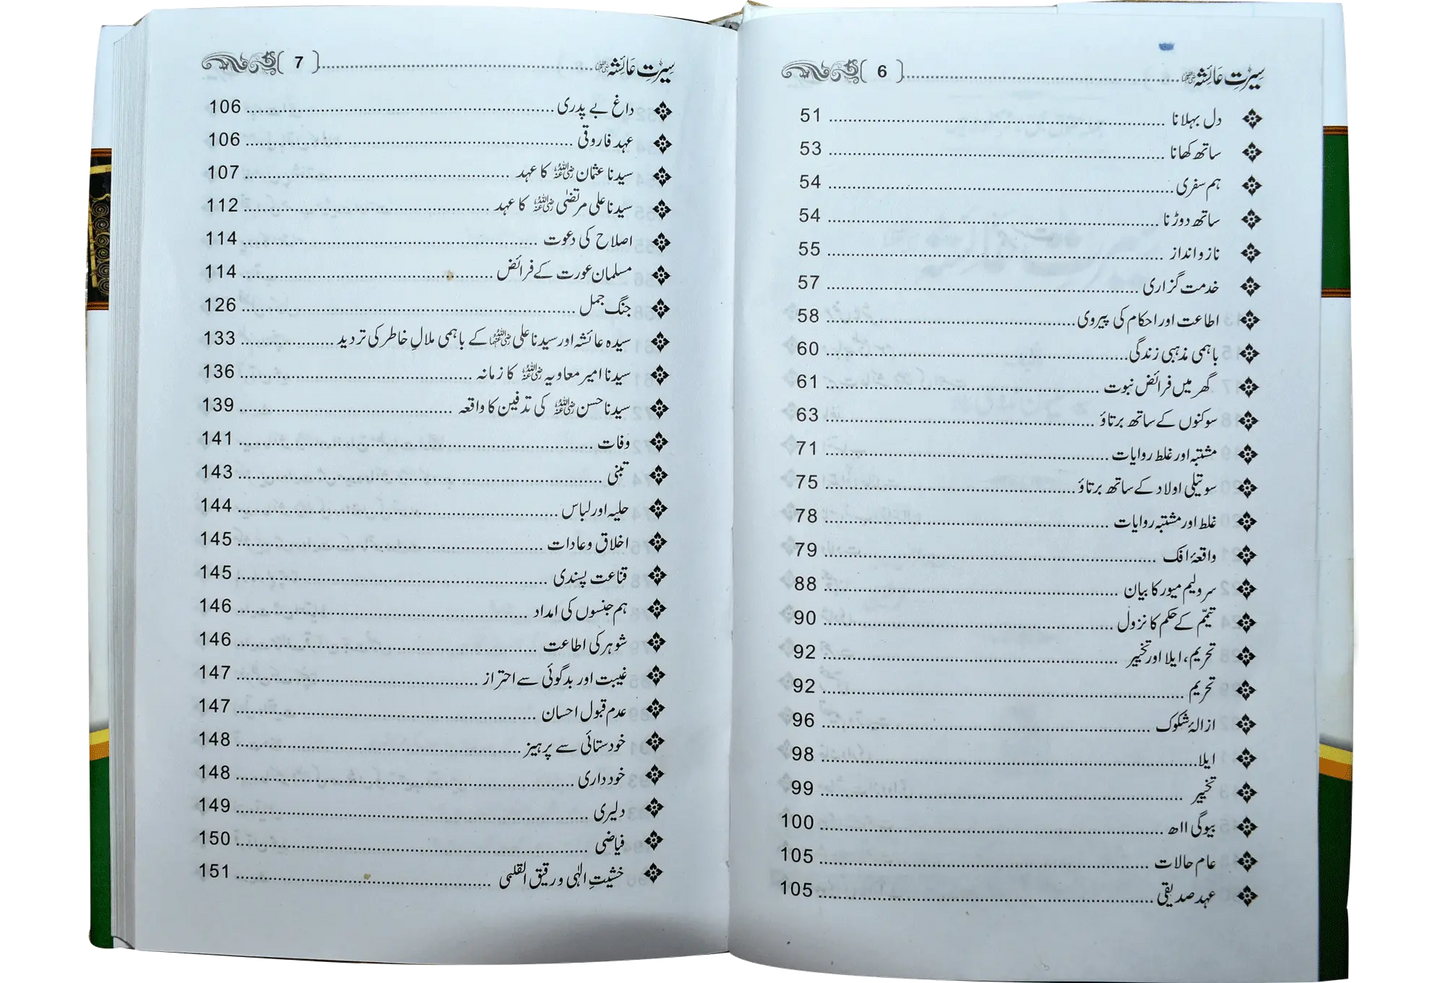 سیرتِ عائشہ رضی اللہ عنہا ........ { 6 }
دل بہلانا ........ 51
ساتھ کھانا ........ 53
ہم سفری ........ 54
ساتھ دوڑنا ........ 54
ناز و انداز ........ 55
خدمت گزاری ........ 57
اطاعت اور احکام کی پیروی ........ 58
باہمی مذہبی زندگی ........ 60
گھر میں فرائض نبوت ........ 61
سوکنوں کے ساتھ برتاؤ ........ 63
مشتبہ اور غلط روایات ........ 71
سوتیلی اولاد کے ساتھ برتاؤ ........ 75
غلط اور مشتبہ روایات ........ 78
واقعۂ افک ........ 79
سر ولیم میور کا بیان ........ 88
تیمّم کے حکم کا نزول ........ 90
تحریم، ایلا اور تخییر ........ 92
تحریم ........ 92
ازالۂ شکوک ........ 96
ایلا ........ 98
تخییر ........ 99
بیوگی ااھ ........ 100
عام حالات ........ 105
عہد صدیقی ........ 105
سیرتِ عائشہ رضی اللہ عنہا ........ { 7 }
داغ بے پدری ........ 106
عہد فاروقی ........ 106
سیدنا عثمان رضی اللہ عنہ کا عہد ........ 107
سیدنا علی مرتضیٰ رضی اللہ عنہ کا عہد ........ 112
اصلاح کی دعوت ........ 114
مسلمان عورت کے فرائض ........ 114
جنگ جمل ........ 126
سیدہ عائشہ اور سیدنا علی رضی اللہ عنہما کے باہمی ملالِ خاطر کی تردید ........ 133
سیدنا امیر معاویہ رضی اللہ عنہ کا زمانہ ........ 136
سیدنا حسن رضی اللہ عنہ کی تدفین کا واقعہ ........ 139
وفات ........ 141
تبنی ........ 143
حلیہ اور لباس ........ 144
اخلاق و عادات ........ 145
قناعت پسندی ........ 145
ہم جنسوں کی امداد ........ 146
شوہر کی اطاعت ........ 146
غیبت اور بدگوئی سے احتراز ........ 147
عدم قبول احسان ........ 147
خودستائی سے پرہیز ........ 148
خودداری ........ 148
دلیری ........ 149
فیاضی ........ 150
خشیتِ الٰہی و رقیق القلبی ........ 151